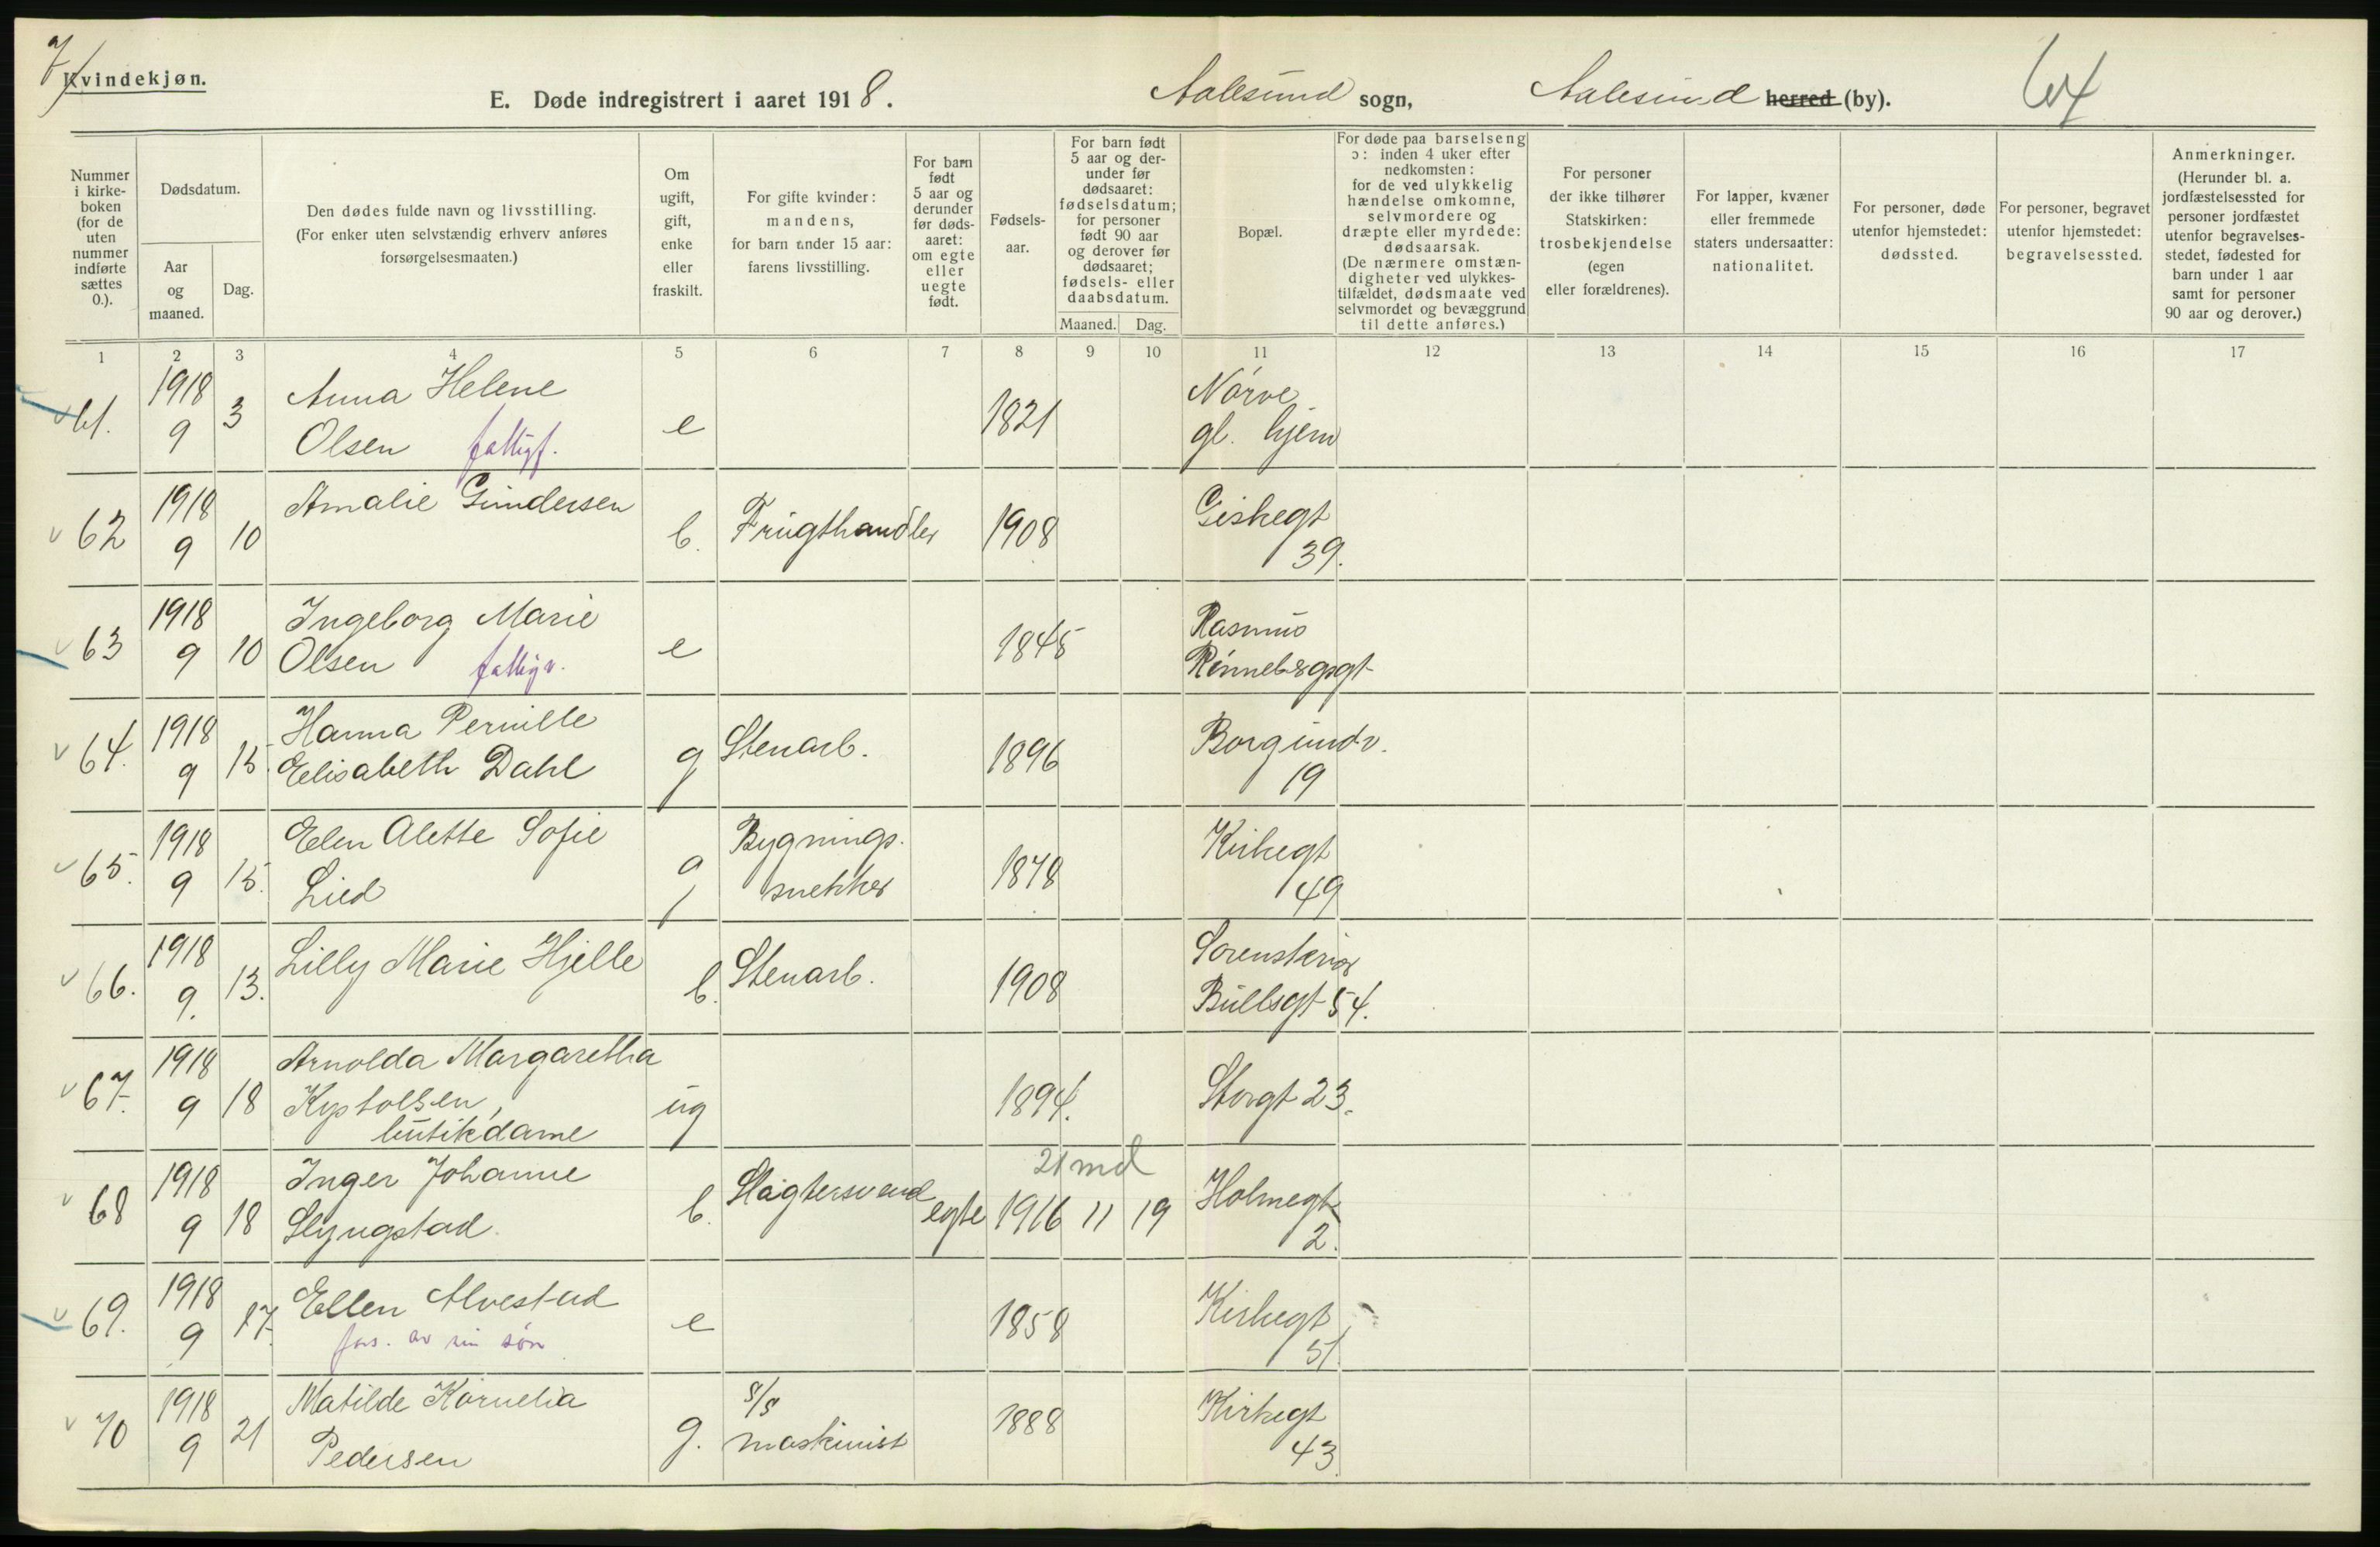 7/
Kvindekjøn.
E. Døde indregistrert i aaret 1918. Aalesund sogn, Aalesund herred (by). 64
Nummer i kirkeboken (for de uten nummer indførte sættes 0.).
Dødsdatum.
Aar og maaned.
Dag.
Den dødes fulde navn og livsstilling.
(For enker uten selvstændig erhverv anføres forsørgelsesmaaten.)
Om ugift, gift, enke eller fraskilt.
For gifte kvinder: mandens, for barn under 15 aar: farens livsstilling.
For barn født 5 aar og derunder før dødsaaret: om egte eller uegte født.
Fødselsaar.
For barn født 5 aar og derunder før dødsaaret: fødselsdatum; for personer født 90 aar og derover før dødsaaret; fødsels- eller daabsdatum.
Maaned. Dag.
Bopæl.
For døde paa barselseng ɔ: inden 4 uker efter nedkomsten: for de ved ulykkelig hændelse omkomne, selvmordere og dræpte eller myrdede: dødsaarsak. (De nærmere omstændigheter ved ulykkestilfældet, dødsmaate ved selvmordet og bevæggrund til dette anføres.)
For personer der ikke tilhører Statskirken: trosbekjendelse (egen eller forældrenes).
For lapper, kvæner eller fremmede staters undersaatter: nationalitet.
For personer, døde utenfor hjemstedet: dødssted.
For personer, begravet utenfor hjemstedet: begravelsessted.
Anmerkninger. (Herunder bl. a. jordfæstelsessted for personer jordfæstet utenfor begravelsesstedet, fødested for barn under 1 aar samt for personer 90 aar og derover.)
1 2 3 4 5 6 7 8 9 10 11 12 13 14 15 16 17
61. 1918 9 3 Anna Helene Olsen fattigf. e 1821 Nørve gl. hjem
62 1918 9 10 Amalie Gundersen b. Frugthandler 1908 Giskegt 39.
63 1918 9 10 Ingeborg Marie Olsen fattigv. e 1845 Rasmus Rønnebergsgt
64. 1918 9 15. Hanna Pernille Elisabeth Dahl g Stenarb. 1896 Borgundv. 19
65. 1918 9 15. Elen Alette Sofie Lied g Bygnings. snekker 1878 Kirkegt 49
66. 1918 9. 13. Lilly Marie Hjelle b. Stenarb. 1908 Sorenskriver Bullsgt 54.
67. 1918 9 18 Arnolda Margaretha Kystolsen, butikdame ug 1894. Storgt 23.
68 1918 9 18 Inger Johanne Slyngstad. b. Slagtersvend egte 1916 11 19 21 md Holmegt 2.
69. 1918 9 17. Ellen Alvestad fors. av sin søn e 1858 Kirkegt 51
70 1918 9 21 Matilde Kornelia Pedersen g. s/s maskinist 1888 Kirkegt 43.